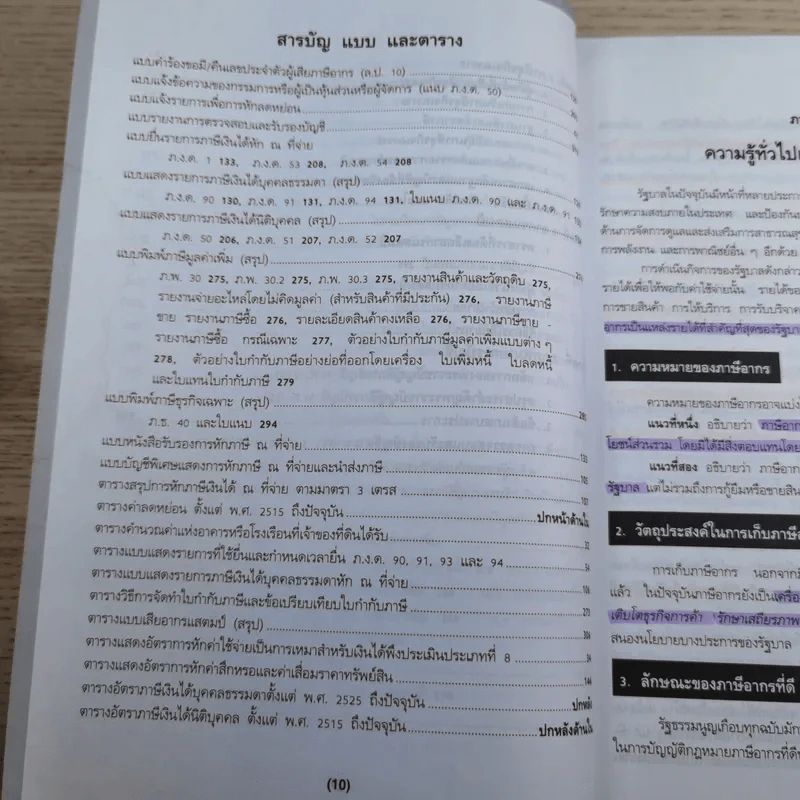 สารบัญ แบบ และตาราง
แบบคำร้องขอมี/คืนเลขประจำตัวผู้เสียภาษีอากร (ล.ป. 10)
แบบแจ้งข้อความของกรรมการหรือผู้เป็นหุ้นส่วนหรือผู้จัดการ (แนบ ภ.ง.ด. 50)
แบบแจ้งรายการเพื่อการหักลดหย่อน
แบบรายงานการตรวจสอบและรับรองบัญชี
แบบยื่นรายการภาษีเงินได้หัก ณ ที่จ่าย
ภ.ง.ด. 1 133, ภ.ง.ด. 53 208, ภ.ง.ด. 54 208
แบบแสดงรายการภาษีเงินได้บุคคลธรรมดา (สรุป)
ภ.ง.ด. 90 130, ภ.ง.ด. 91 131, ภ.ง.ด. 94 131, ใบแนบ ภ.ง.ด. 90 และ ภ.ง.ด. 91
แบบแสดงรายการภาษีเงินได้นิติบุคคล (สรุป)
ภ.ง.ด. 50 206, ภ.ง.ด. 51 207, ภ.ง.ด. 52 207
แบบพิมพ์ภาษีมูลค่าเพิ่ม (สรุป)
ภ.พ. 30 275, ภ.พ. 30.2 275, ภ.พ. 30.3 275, รายงานสินค้าและวัตถุดิบ 275,
รายงานจ่ายอะไหล่โดยไม่คิดมูลค่า (สำหรับสินค้าที่มีประกัน) 276, รายงานภาษี
ขาย รายงานภาษีซื้อ 276, รายละเอียดสินค้าคงเหลือ 276, รายงานภาษีขาย -
รายงานภาษีซื้อ กรณีเฉพาะ 277, ตัวอย่างใบกำกับภาษีมูลค่าเพิ่มแบบต่าง ๆ
278, ตัวอย่างใบกำกับภาษีอย่างย่อที่ออกโดยเครื่อง ใบเพิ่มหนี้ ใบลดหนี้
และใบแทนใบกำกับภาษี 279
แบบพิมพ์ภาษีธุรกิจเฉพาะ (สรุป)
ภ.ธ. 40 และใบแนบ 294
แบบหนังสือรับรองการหักภาษี ณ ที่จ่าย
แบบบัญชีพิเศษแสดงการหักภาษี ณ ที่จ่ายและนำส่งภาษี
ตารางสรุปการหักภาษีเงินได้ ณ ที่จ่าย ตามมาตรา 3 เตรส
ตารางค่าลดหย่อน ตั้งแต่ พ.ศ. 2515 ถึงปัจจุบัน ปกหน้าด้านใ
ตารางคำนวณค่าแห่งอาคารหรือโรงเรียนที่เจ้าของที่ดินได้รับ
ตารางแบบแสดงรายการที่ใช้ยื่นและกำหนดเวลายื่น ภ.ง.ด. 90, 91, 93 และ 94
ตารางแบบแสดงรายการภาษีเงินได้บุคคลธรรมดาหัก ณ ที่จ่าย
ตารางวิธีการจัดทำใบกำกับภาษีและข้อเปรียบเทียบใบกำกับภาษี
ตารางแบบเสียอากรแสตมป์ (สรุป)
ตารางแสดงอัตราการหักค่าใช้จ่ายเป็นการเหมาสำหรับเงินได้พึงประเมินประเภทที่ 8
ตารางแสดงอัตราการหักค่าสึกหรอและค่าเสื่อมราคาทรัพย์สิน
ตารางอัตราภาษีเงินได้บุคคลธรรมดาตั้งแต่ พ.ศ. 2525 ถึงปัจจุบัน ปกหลัง
ตารางอัตราภาษีเงินได้นิติบุคคล ตั้งแต่ พ.ศ. 2515 ถึงปัจจุบัน ปกหลังด้านใ
(10)
ภา
ความรู้ทั่วไปเ
รัฐบาลในปัจจุบันมีหน้าที่หลายประกา
รักษาความสงบภายในประเทศ และป้องกันป
ด้านการจัดการดูแลและส่งเสริมการสาธารณสุ
การพลังงาน และการพาณิชย์อื่น ๆ อีกด้วย
การดำเนินกิจการของรัฐบาลดังกล่าว
รายได้เพื่อให้พอกับค่าใช้จ่ายนั้น รายได้ขอ
การขายสินค้า การให้บริการ การรับบริจาค
อากรเป็นแหล่งรายได้ที่สำคัญที่สุดของรัฐบา
1. ความหมายของภาษีอากร
ความหมายของภาษีอากรอาจแบ่งไ
แนวที่หนึ่ง อธิบายว่า ภาษีอาก
โยชน์ส่วนรวม โดยมิได้มีสิ่งตอบแทนโดย
แนวที่สอง อธิบายว่า ภาษีอากร
รัฐบาล แต่ไม่รวมถึงการกู้ยืมหรือขายสิน
2. วัตถุประสงค์ในการเก็บภาษีอ
การเก็บภาษีอากร นอกจากมี
แล้ว ในปัจจุบันภาษีอากรยังเป็นเครื่อ
เติบโตธุรกิจการค้า รักษาเสถียรภาพ
สนองนโยบายบางประการของรัฐบาล
3. ลักษณะของภาษีอากรที่ดี
รัฐธรรมนูญเกือบทุกฉบับมัก
ในการบัญญัติกฎหมายภาษีอากรที่ดีน